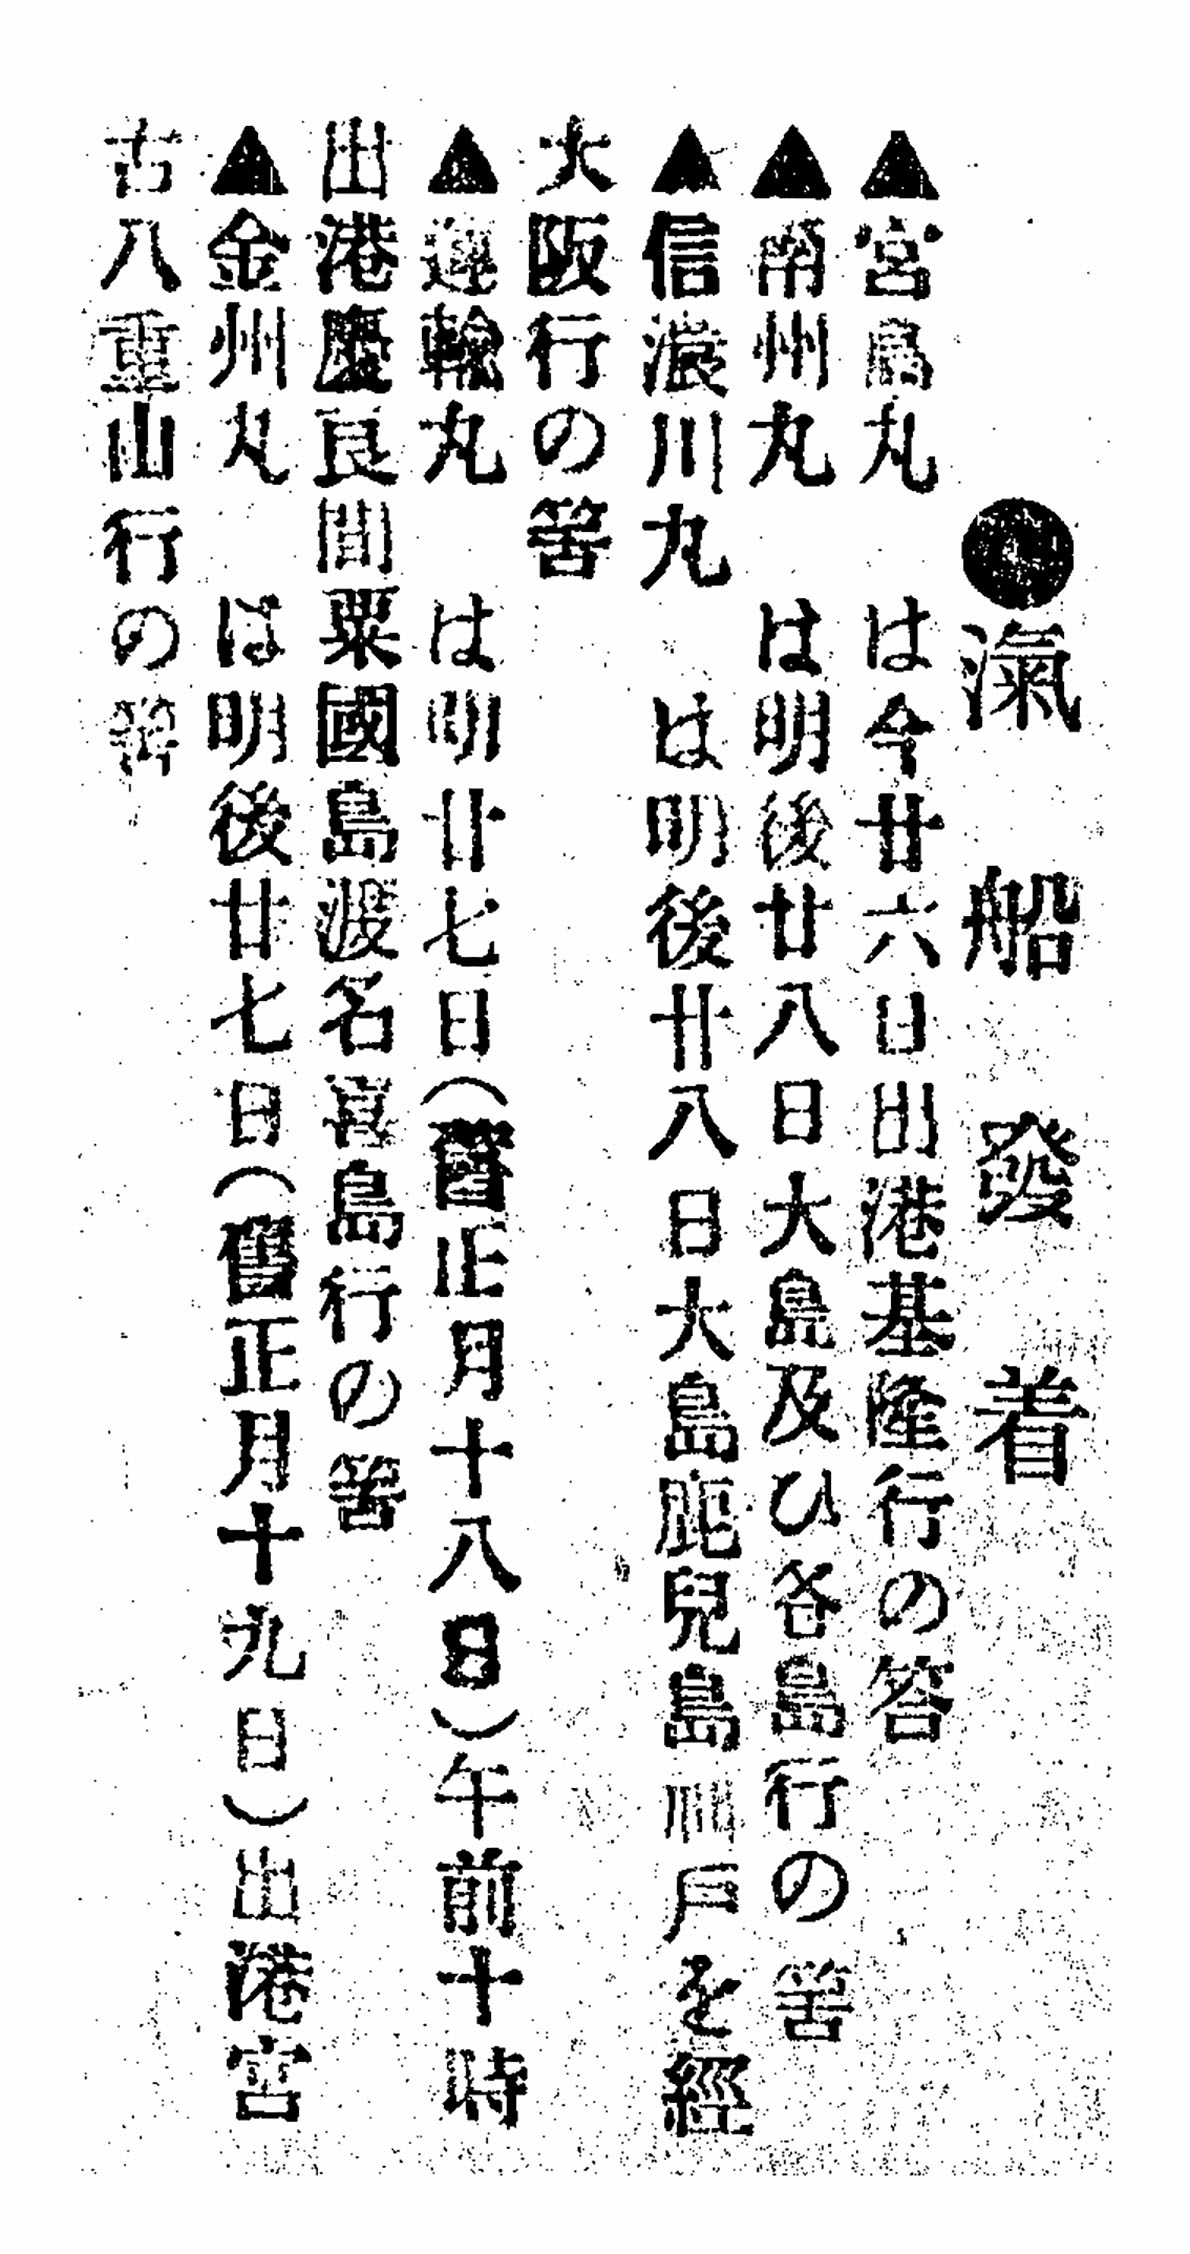 ●滊船發着
▲宮島丸 は今廿六日出港基隆行の筈
▲南州丸 は明後廿八日大島及ひ各島行の筈
▲信濃川丸 は明後廿八日大島鹿兒島神戸を經
大阪行の筈
▲運輸丸 は明廿七日(舊正月十八日)午前十時
出港慶良間粟國島渡名喜島行の筈
▲金州丸 は明後廿七日(舊正月十九日)出港宮
古八重山行の筈